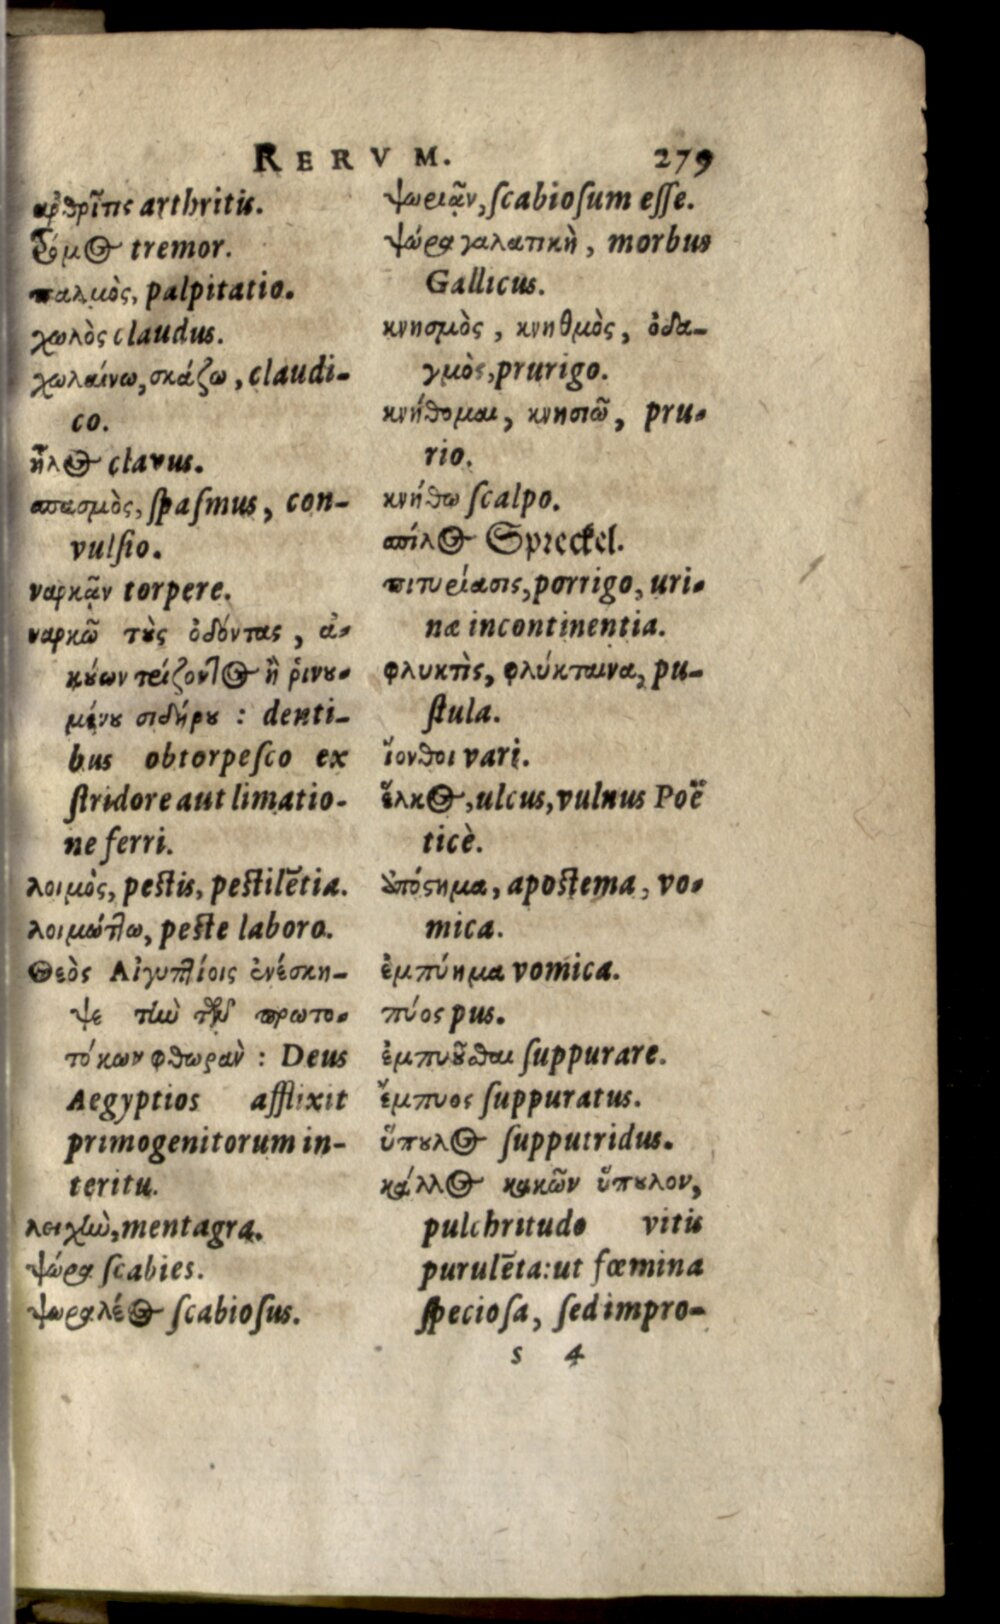 RERVM. 279
ἀρθρῖτις arthritis.
τρόμος tremor.
παλμὸς, palpitatio.
χωλὸς claudus.
χωλαίνω, σκάζω, claudi-
co.
ἧλος clavus.
σπασμὸς, ſpaſmus, con-
vulſio.
ναρκᾷν torpere.
ναρκῶ τοὺς ὀδόντας, ἀ-
κούων τρίζοντος ἢ ῥινου-
μένου σιδήρου : denti-
bus obtorpeſco ex
ſtridore aut limatio-
ne ferri.
λοιμὸς, peſtis, peſtilẽtia.
λοιμώττω, peſte laboro.
Θεὸς Αἰγυπτίοις ἐνέσκη-
ψε τὴν τῶν πρωτο-
τόκων φθορὰν : Deus
Aegyptios afflixit
primogenitorum in-
teritu.
λειχὴν, mentagra.
ψώρα ſcabies.
ψωραλέος ſcabioſus.
ψωριᾷν, ſcabioſum eſſe.
ψώρα γαλατικὴ, morbus
Gallicus.
κνησμὸς, κνηθμὸς, ὀδα-
γμὸς, prurigo.
κνήθομαι, κνησιῶ, pru-
rio.
κνήθω ſcalpo.
σπίλος Spreckel.
πιτυρίασις, porrigo, uri-
næ incontinentia.
φλυκτὶς, φλύκταινα, pu-
ſtula.
ἴονθοι vari.
ἕλκος, ulcus, vulnus Poë
ticè.
ἀπόστημα, apoſtema, vo-
mica.
ἐμπύημα vomica.
πύος pus.
ἐμπυοῦσθαι ſuppurare.
ἔμπυος ſuppuratus.
ὕπουλος ſupputridus.
κάλλος κακῶν ὕπουλον,
pulchritudo vitiis
purulẽta: ut fœmina
ſpecioſa, ſed impro-
s 4